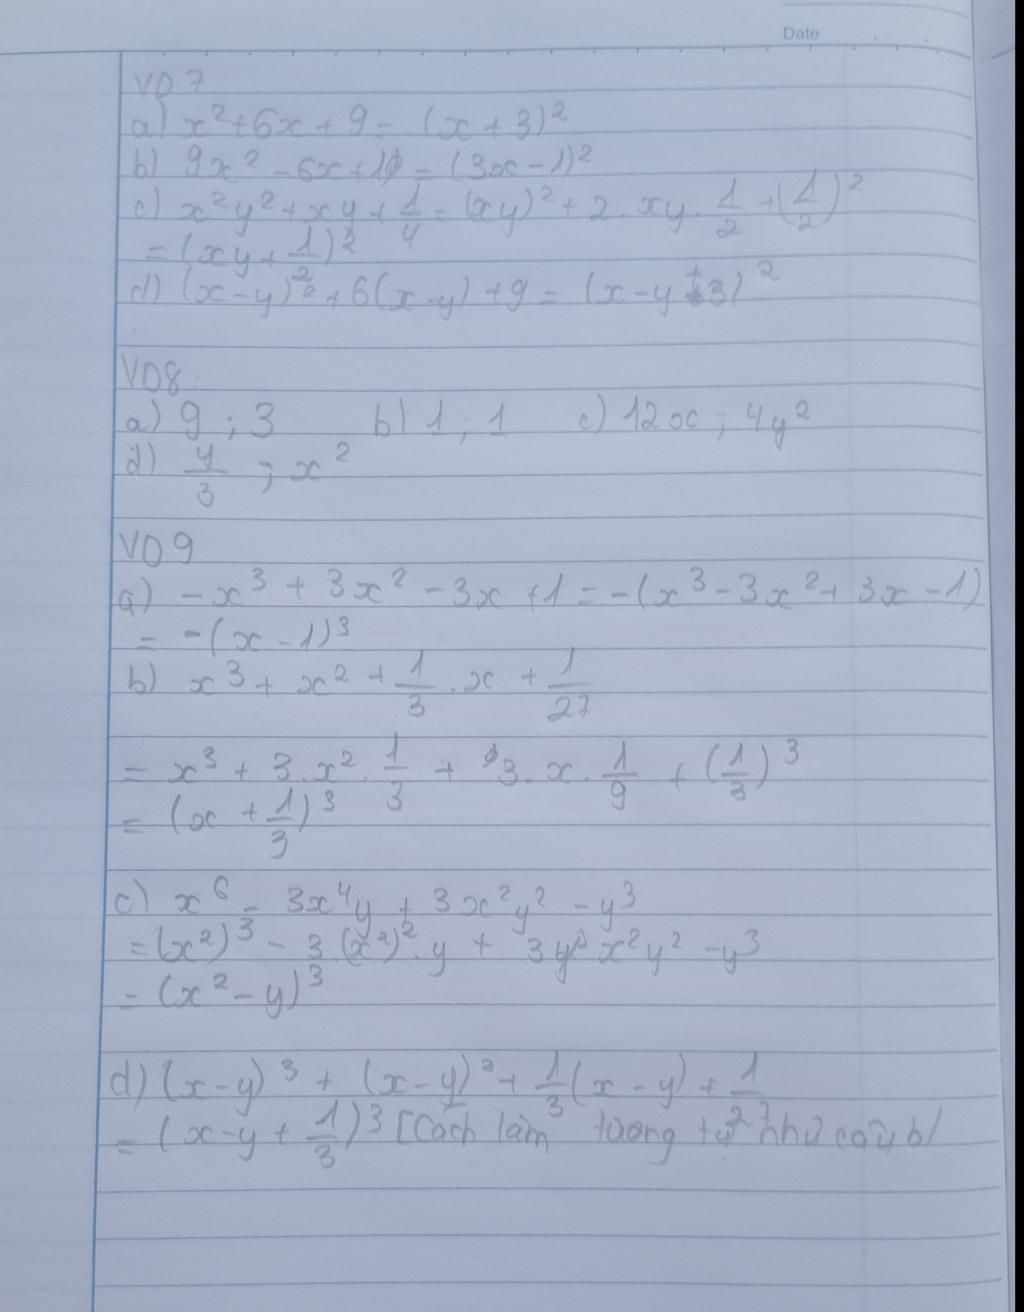 Date
VD7
a) x² + 6x + 9 = (x + 3)²
b) 9x² - 6x + 1 = (3x - 1)²
c) x²y² + xy + 1/4 = (xy)² + 2 . xy . 1/2 + (1/2)²
= (xy + 1/2)²
d) (x - y)² + 6(x - y) + 9 = (x - y + 3)²
VD8
a) 9 ; 3 b) 1 ; 1 c) 12x ; 4y²
d) y/3 ; x²
VD9
a) -x³ + 3x² - 3x + 1 = -(x³ - 3x² + 3x - 1)
= -(x - 1)³
b) x³ + x² + 1/3 . x + 1/27
= x³ + 3 . x² . 1/3 + 3 . x . 1/9 + (1/3)³
= (x + 1/3)³
c) x⁶ - 3x⁴y + 3x²y² - y³
= (x²)³ - 3 . (x²)² . y + 3 x²y² - y³
= (x² - y)³
d) (x - y)³ + (x - y)² + 1/3 (x - y) + 1/27
= (x - y + 1/3)³ [Cách làm tương tự như câu b)